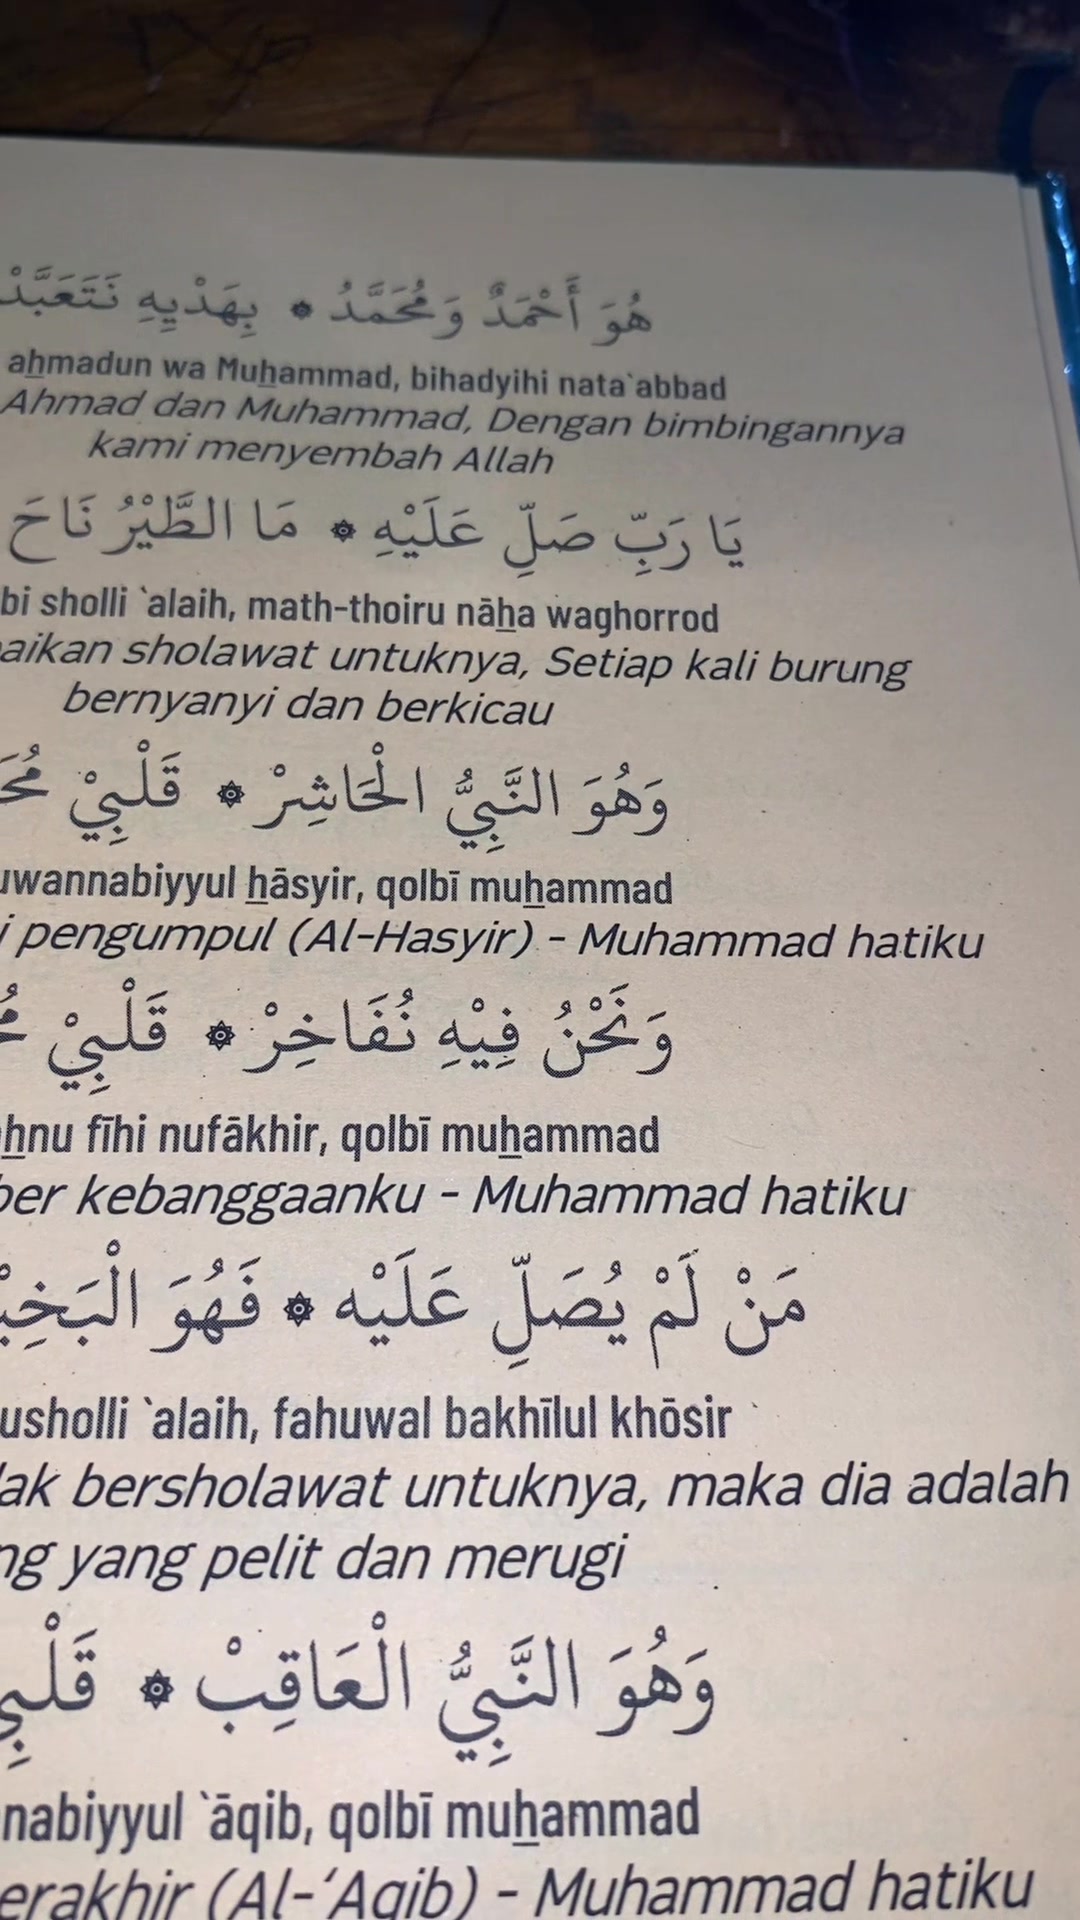 هُوَ أَحْمَدٌ وَمُحَمَّدُ ۞ بِهَدْيِهِ نَتَعَبَّدْ
ahmadun wa Muhammad, bihadyihi nata`abbad
Ahmad dan Muhammad, Dengan bimbingannya
kami menyembah Allah
يَا رَبِّ صَلِّ عَلَيْهِ ۞ مَا الطَّيْرُ نَاحَ
bi sholli `alaih, math-thoiru nāha waghorrod
aikan sholawat untuknya, Setiap kali burung
bernyanyi dan berkicau
وَهُوَ النَّبِيُّ الْحَاشِرْ ۞ قَلْبِيْ
uwannabiyyul hāsyir, qolbī muhammad
i pengumpul (Al-Hasyir) - Muhammad hatiku
وَنَحْنُ فِيْهِ نُفَاخِرْ ۞ قَلْبِيْ
hnu fīhi nufākhir, qolbī muhammad
ber kebanggaanku - Muhammad hatiku
مَنْ لَمْ يُصَلِّ عَلَيْه ۞ فَهُوَ
usholli `alaih, fahuwal bakhīlul khōsir
ak bersholawat untuknya, maka dia adalah
ng yang pelit dan merugi
وَهُوَ النَّبِيُّ الْعَاقِبْ ۞
nabiyyul `āqib, qolbī muhammad
erakhir (Al-‘Aqib) - Muhammad hatiku